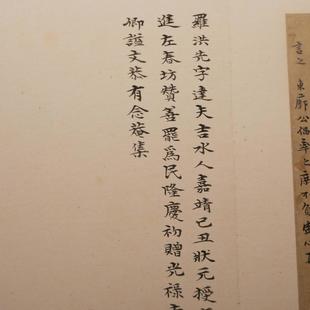 言之 東廓公倡率上度
羅洪先字達夫吉水人嘉靖己丑狀元授
進左春坊贊善罷為民隆慶初贈光祿
卿謚文恭有念菴集